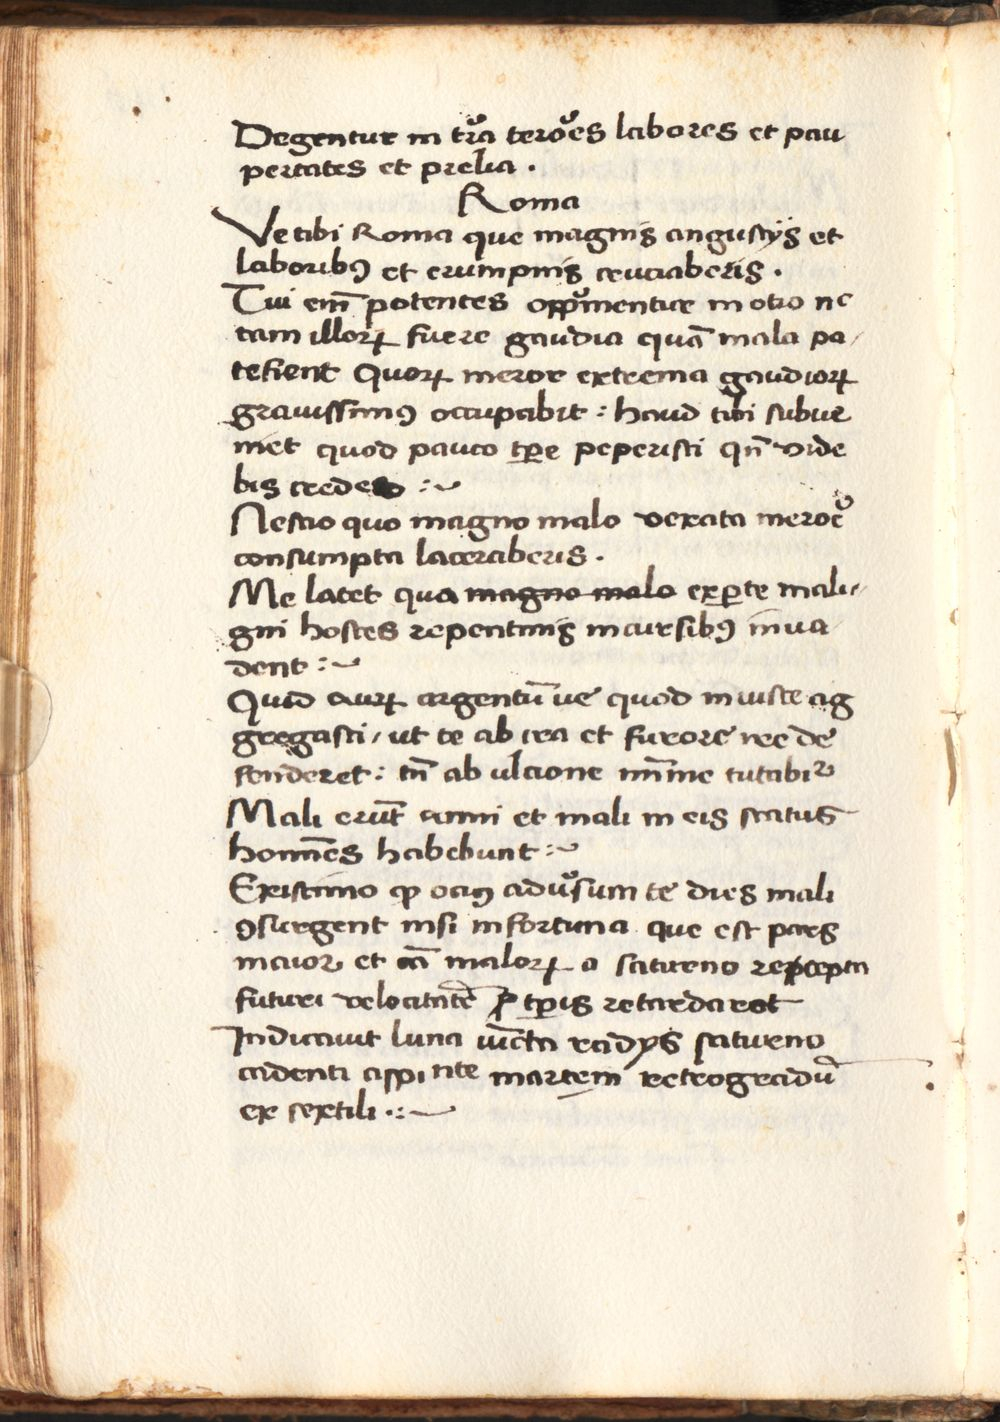 Degentur in tr̃a terrores labores et pau
pertates et prelia .
Roma
Ve tibi Roma que magnis angustijs et
laboribꝰ et erumpnis cruciaberis .
Tui em̃ potentes opprimentur in otio nc
tam illorꝝ fuere gaudia quã mala pa
tefient Quorꝝ meror extrema gaudiorꝝ
grauissimꝰ occupabit : haud tibi subue
niet quod pauco tꝑe peperisti qñ vide
bis credes :~
Nescio quo magno malo vexata meroẽ
consumpta laceraberis .
Me latet qua magno malo ex ꝑte mali
gni hostes repentinis incursibꝰ inua
dent :~
Quid aurꝝ argentũ ue quod iniuste ag
gregasti / ut te ab ira et furore nre de
fenderet : tñ ab ulcione minime tutabit̃
Mali erũt anni et mali in eis status
homiñes habebunt :~
Existimo ꝙ ociꝰ aduersum te dies mali
ꝯsurgent nisi infortuna que est pars
maior et cã malorꝝ a saturno recepta
futuri velocitatẽ ꝑ tꝑis retardaret
Indicauit luna iũcta radijs saturno
cadenti aspiciente martem retrogradũ
ex sextili .:~